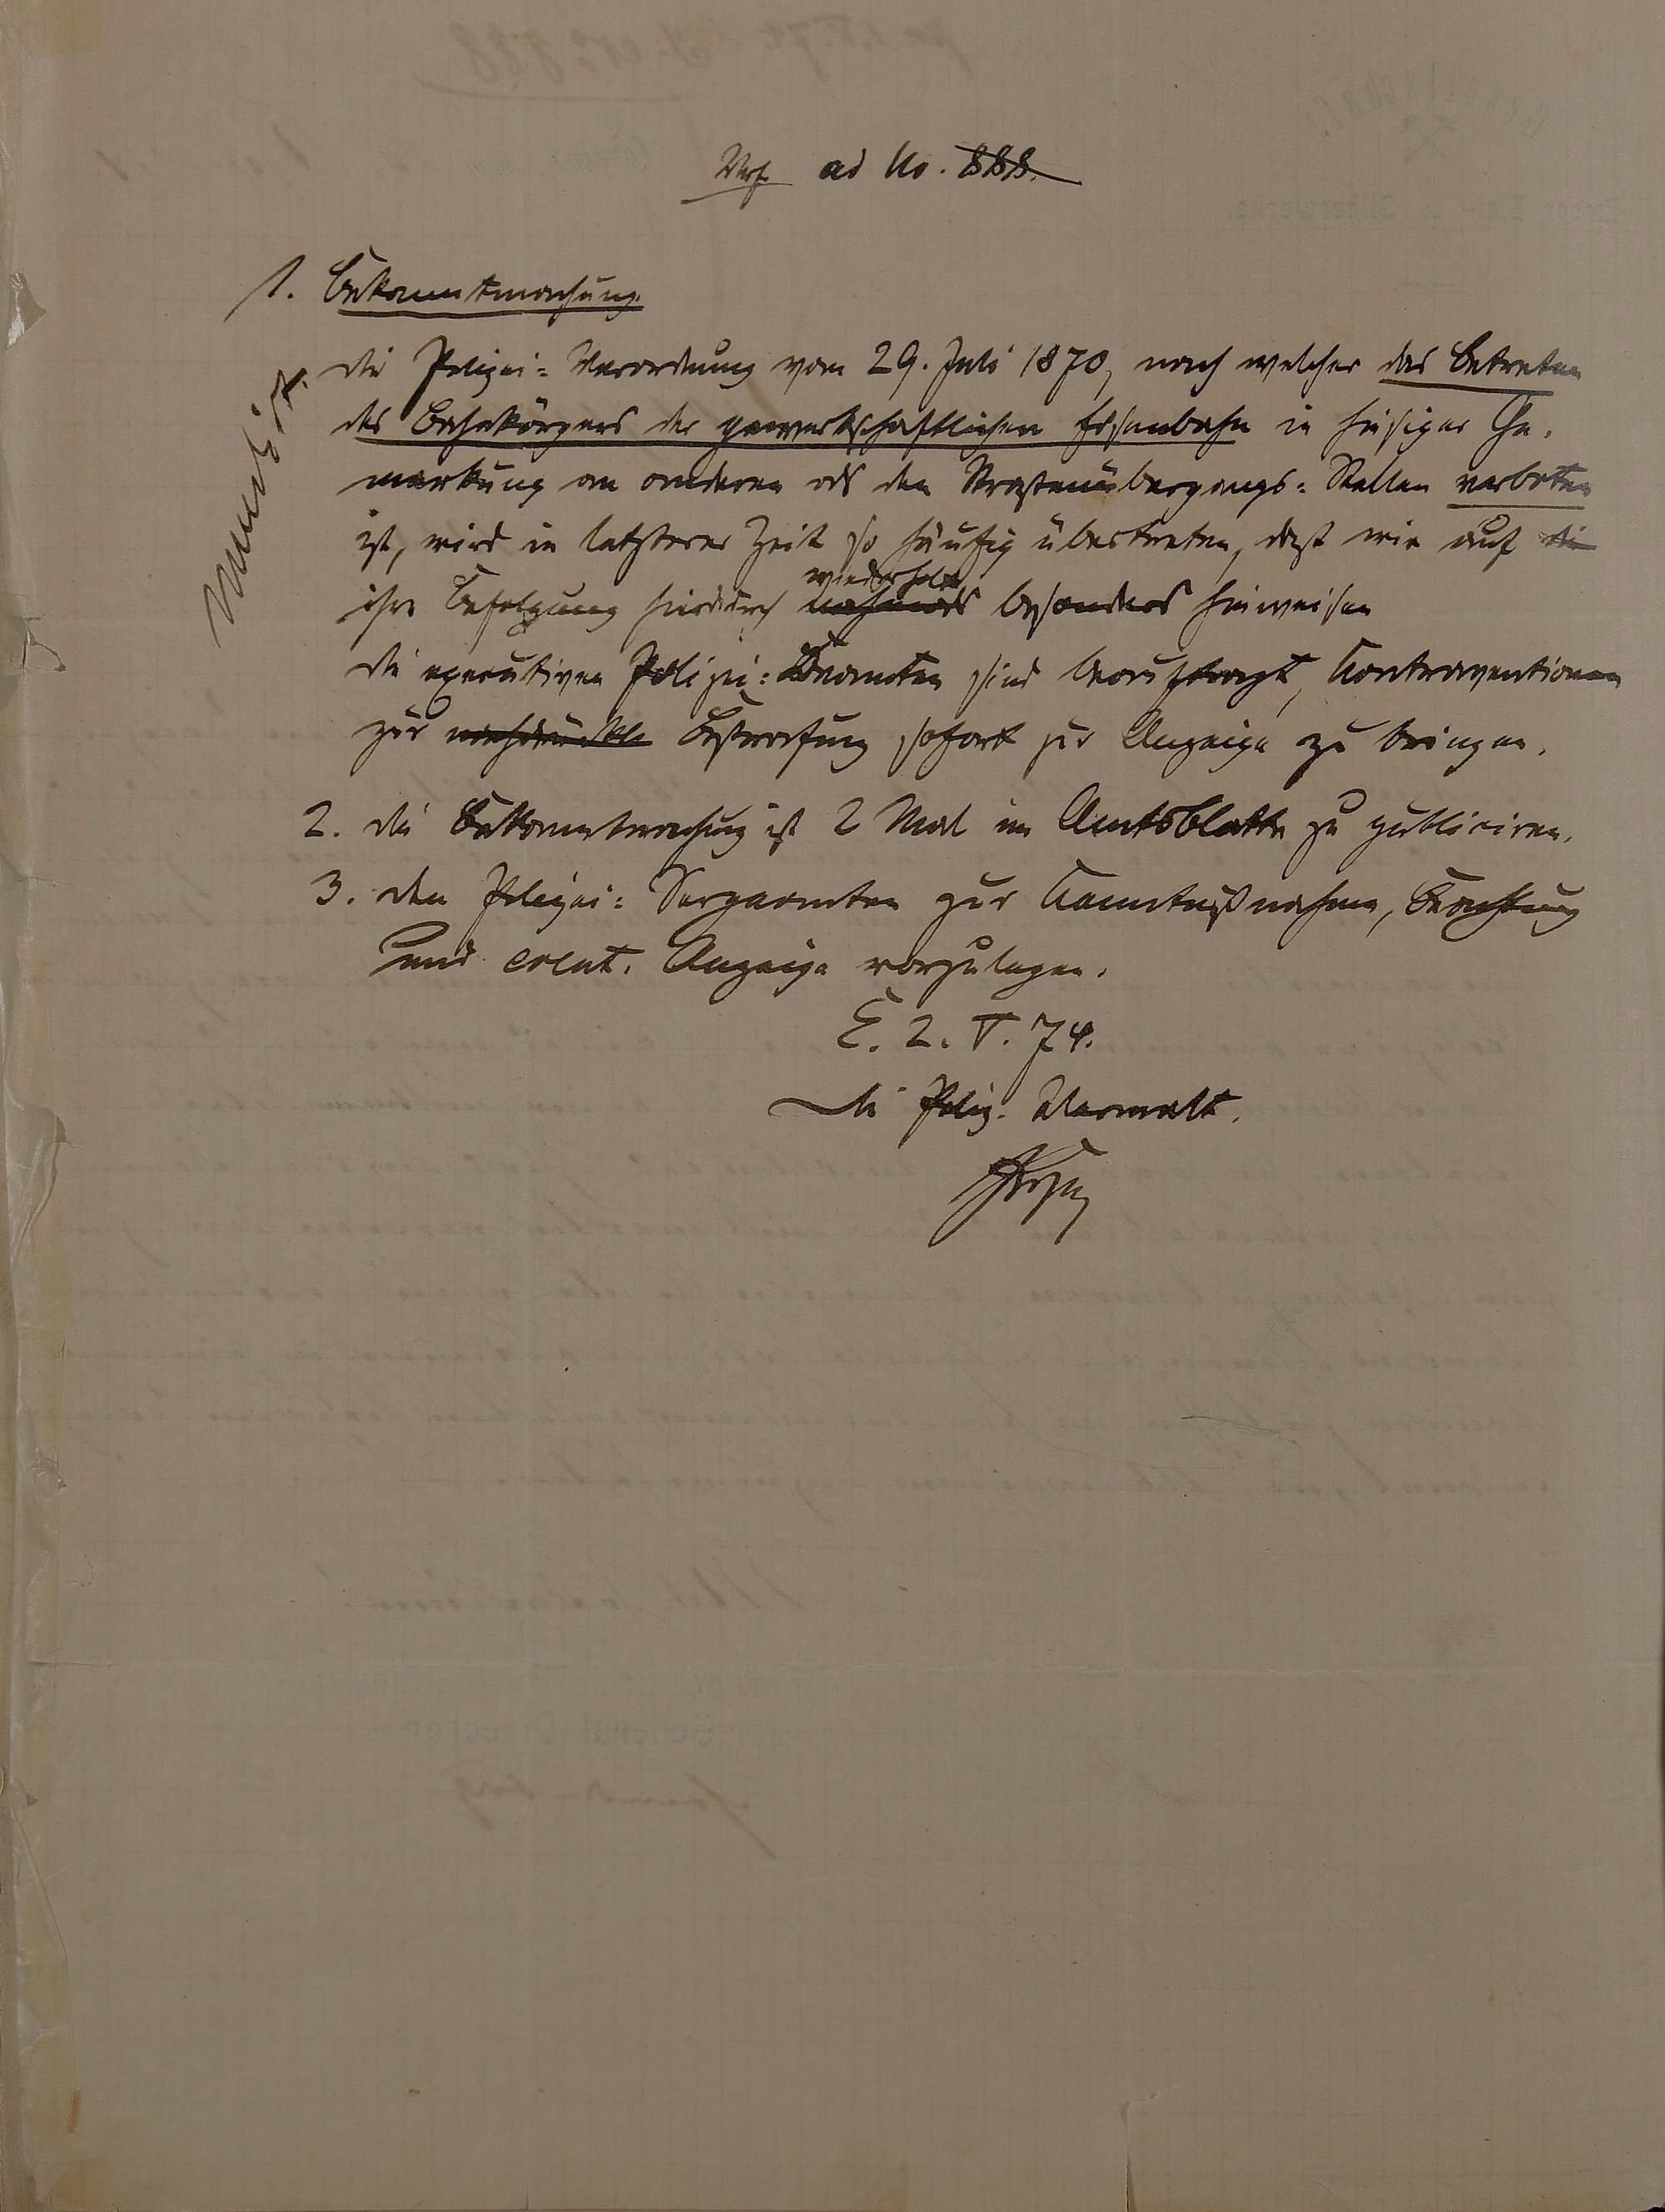 Verf. ad No. 888.
1. Bekanntmachung.
Die Polizei=Verordnung vom 29. Juli 1870, nach welcher das Betreten
des Bahnkörpers der gewerkschaftlichen Eisenbahn in hiesiger Ge-
markung an anderen als den Straßenübergangs=Stellen verboten
ist, wird in letzterer Zeit so häufig übertreten, daß wir auf die
wiederholt
ihre Befolgung hierdurch nochmals besonders hinweisen
Die executiven Polizei=Beamten sind beauftragt, Contraventionen
zur nachdrückl. Bestrafung sofort zur Anzeige zu bringen.
2. Die Bekanntmachung ist 2 Mal im Amtsblatte zu publiciren.
3. Den Polizei=Sergeanten zur Kenntnißnahme, Beachtung
und event. Anzeige vorzulegen.
E. 2. V. 74.
Die Poliz. Verwalt.